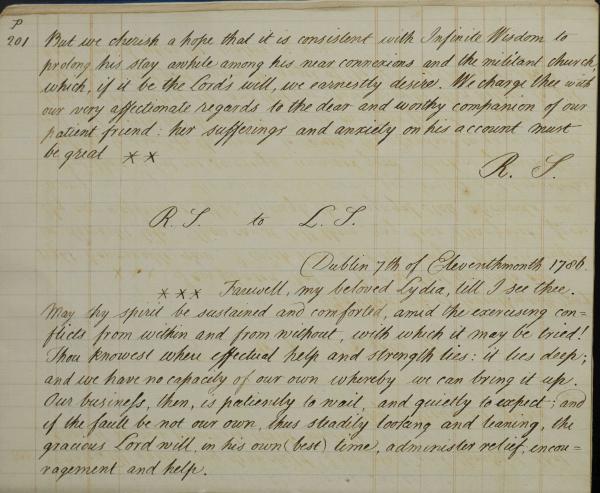 P
201
But we cherish a hope that it is consistent with Infinite Wisdom to
prolong his stay awhile among his near connexions and the militant church,
which, if it be the Lord's will, we earnestly desire. We charge thee with
our very affectionate regards to the dear and worthy companion of our
patient friend: her sufferings and anxiety on his account must
be great × ×
R. S.
R. S. to L. S.
Dublin 7th of Eleventhmonth 1786.
× × × Farewell, my beloved Lydia, till I see thee.
May thy spirit be sustained and comforted, amid the exercising con=
flicts from within and from without, with which it may be tried!
Thou knowest where effectual help and strength lies: it lies deep;
and we have no capacity of our own whereby we can bring it up.
Our business, then, is patiently to wait, and quietly to expect; and
if the fault be not our own, thus steadily looking and leaning, the
gracious Lord will, in his own (best) time, administer relief, encou=
ragement and help.